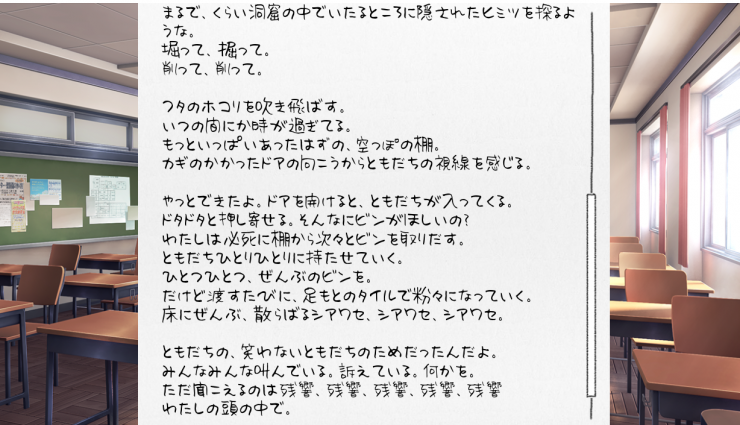 まるで、くらい洞窟の中でいたるところに隠されたヒミツを探るよ
うな。
堀って、掘って。
削って、削って。
フタのホコリを吹き飛ばす。
いつの間にか時が過ぎてる。
もっといっぱいあったはずの、空っぽの棚。
カギのかかったドアの向こうからともだちの視線を感じる。
やっとできたよ。ドアを開けると、ともだちが入ってくる。
ドタドタと押し寄せる。そんなにビンがほしいの?
わたしは必死に棚から次々とビンを取りだす。
ともだちひとりひとりに持たせていく。
ひとつひとつ、ぜんぶのビンを。
だけど渡すたびに、足もとのタイルで粉々になっていく。
床にぜんぶ、散らばるシアワセ、シアワセ、シアワセ。
ともだちの、笑わないともだちのためだったんだよ。
みんなみんな叫んでいる。訴えている。何かを。
ただ聞こえるのは残響、残響、残響、残響、残響
わたしの頭の中で。